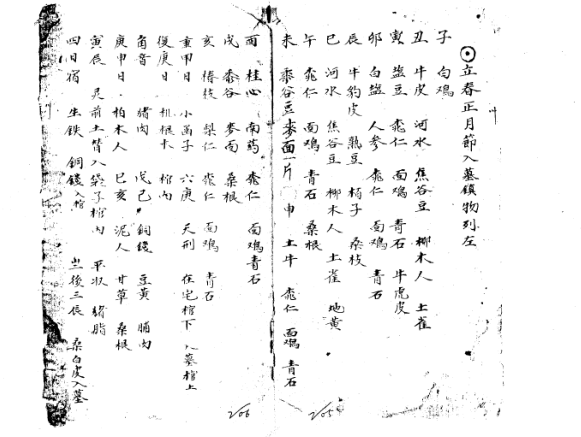 ⊙立春正月節入墓鎮物列左
子 白鴉
丑 牛皮 河水 焦谷豆 柳木人 土雀
寅 盐豆 桃仁 面鴉 青石 牛虎皮
卯 白盐 人参 桃仁 面鴉 青石
辰 牛豹皮 熟豆 桑枝
巳 河水 焦谷豆 柳木人 土雀 地黄
午 桃仁 面鴉 青石 桑根
未 黍谷豆 麦面一片 申 土牛 桃仁 面鴉 青石
酉 桂心 南药 桃仁 面鴉 青石
戌 黍谷 麦面 桑根
亥 椿枝 梨仁 桃仁 面鴉 青石
重甲日 六庚 天刑 在宅棺下 入墓棺上
復庚日 根木 棺内
音 猪肉 戊己 銅錢 豆黄 脯肉
庚申日 柏木人 巳亥 泥人 甘草 桑根
寅辰 灵前土 入袋子棺内 猪脂
四日宿 生鉄 銅錢入棺 後三辰 桑白皮入墓
206 205